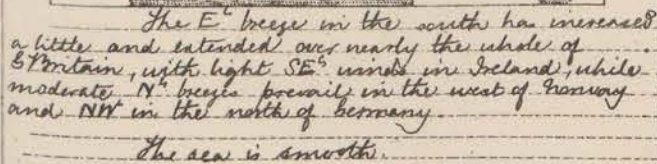 The Eˡʸ breeze in the south has increased
a little and extended over nearly the whole of
Gt Britain, with light SEˡʸ winds in Ireland, while
moderate Nˡʸ breezes prevail in the west of Norway
and NW in the north of Germany.
The sea is smooth.